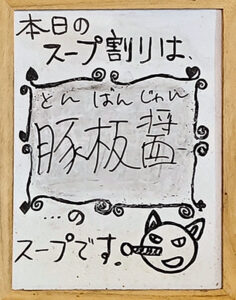 本日の
スープ割りは、
とん ばん じゃん
豚板醤
…の
スープです。